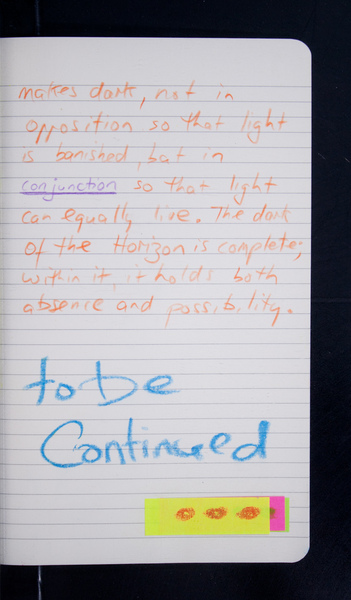 makes dark, not in
opposition so that light
is banished, but in
conjunction so that light
can equally live. The dark
of the Horizon is complete;
within it, it holds both
absence and possibility.
to be
Continued